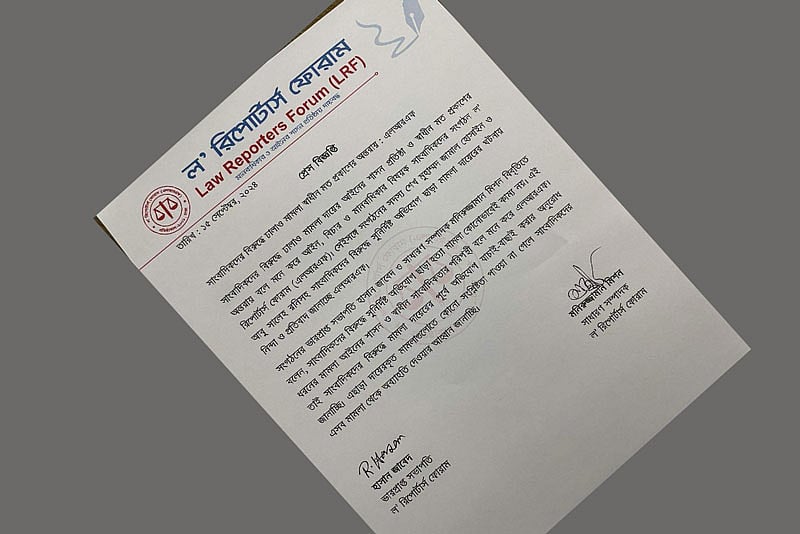 ল' রিপোর্টার্স ফোরাম
Law Reporters Forum (LRF)
তারিখ : ১৫ সেপ্টেম্বর, ২০২৪
প্রেস বিজ্ঞপ্তি
সাংবাদিকদের বিরুদ্ধে ঢালাও মামলা স্বাধীন মত প্রকাশের অন্তরায় : এলআরএফ
সাংবাদিকদের বিরুদ্ধে ঢালাও মামলা দায়ের আইনের শাসন প্রতিষ্ঠা ও স্বাধীন মত প্রকাশের
অন্তরায় বলে মনে করে আইন, বিচার ও মানবাধিকার বিষয়ক সাংবাদিকদের সংগঠন ল'
রিপোর্টার্স ফোরাম (এলআরএফ)। সেইসঙ্গে সংগঠনের সদস্য শেখ মুহাম্মদ জামাল হোসাইন ও
আবু সালেহ রনিসহ সাংবাদিকদের বিরুদ্ধে সুনির্দিষ্ট অভিযোগ ছাড়া মামলা দায়েরের ঘটনায়
নিন্দা ও প্রতিবাদ জানাচ্ছে এলআরএফ।
সংগঠনের ভারপ্রাপ্ত সভাপতি হাসান জাবেদ ও সাধারণ সম্পাদক মনিরুজ্জামান মিশন বিবৃতিতে
বলেন, সাংবাদিকদের বিরুদ্ধে সুনির্দিষ্ট অভিযোগ ছাড়া হত্যা মামলা কোনোভাবেই কাম্য নয়। এই
ধরনের মামলা আইনের শাসন ও স্বাধীন সাংবাদিকতার পরিপন্থী বলে মনে করে এলআরএফ।
তাই সাংবাদিকদের বিরুদ্ধে মামলা দায়েরের পূর্বে অভিযোগ যাচাই-বাছাই করার অনুরোধ
জানাচ্ছি। এছাড়া দায়েরকৃত মামলাগুলোতে কোনো সংশ্লিষ্টতা পাওয়া না গেলে সাংবাদিকদের
এসব মামলা থেকে অব্যাহতি দেওয়ার আহ্বান জানাচ্ছি।
R. Hasan
হাসান জাবেদ
ভারপ্রাপ্ত সভাপতি
ল' রিপোর্টার্স ফোরাম
মনিরুজ্জামান মিশন
সাধারণ সম্পাদক
ল' রিপোর্টার্স ফোরাম